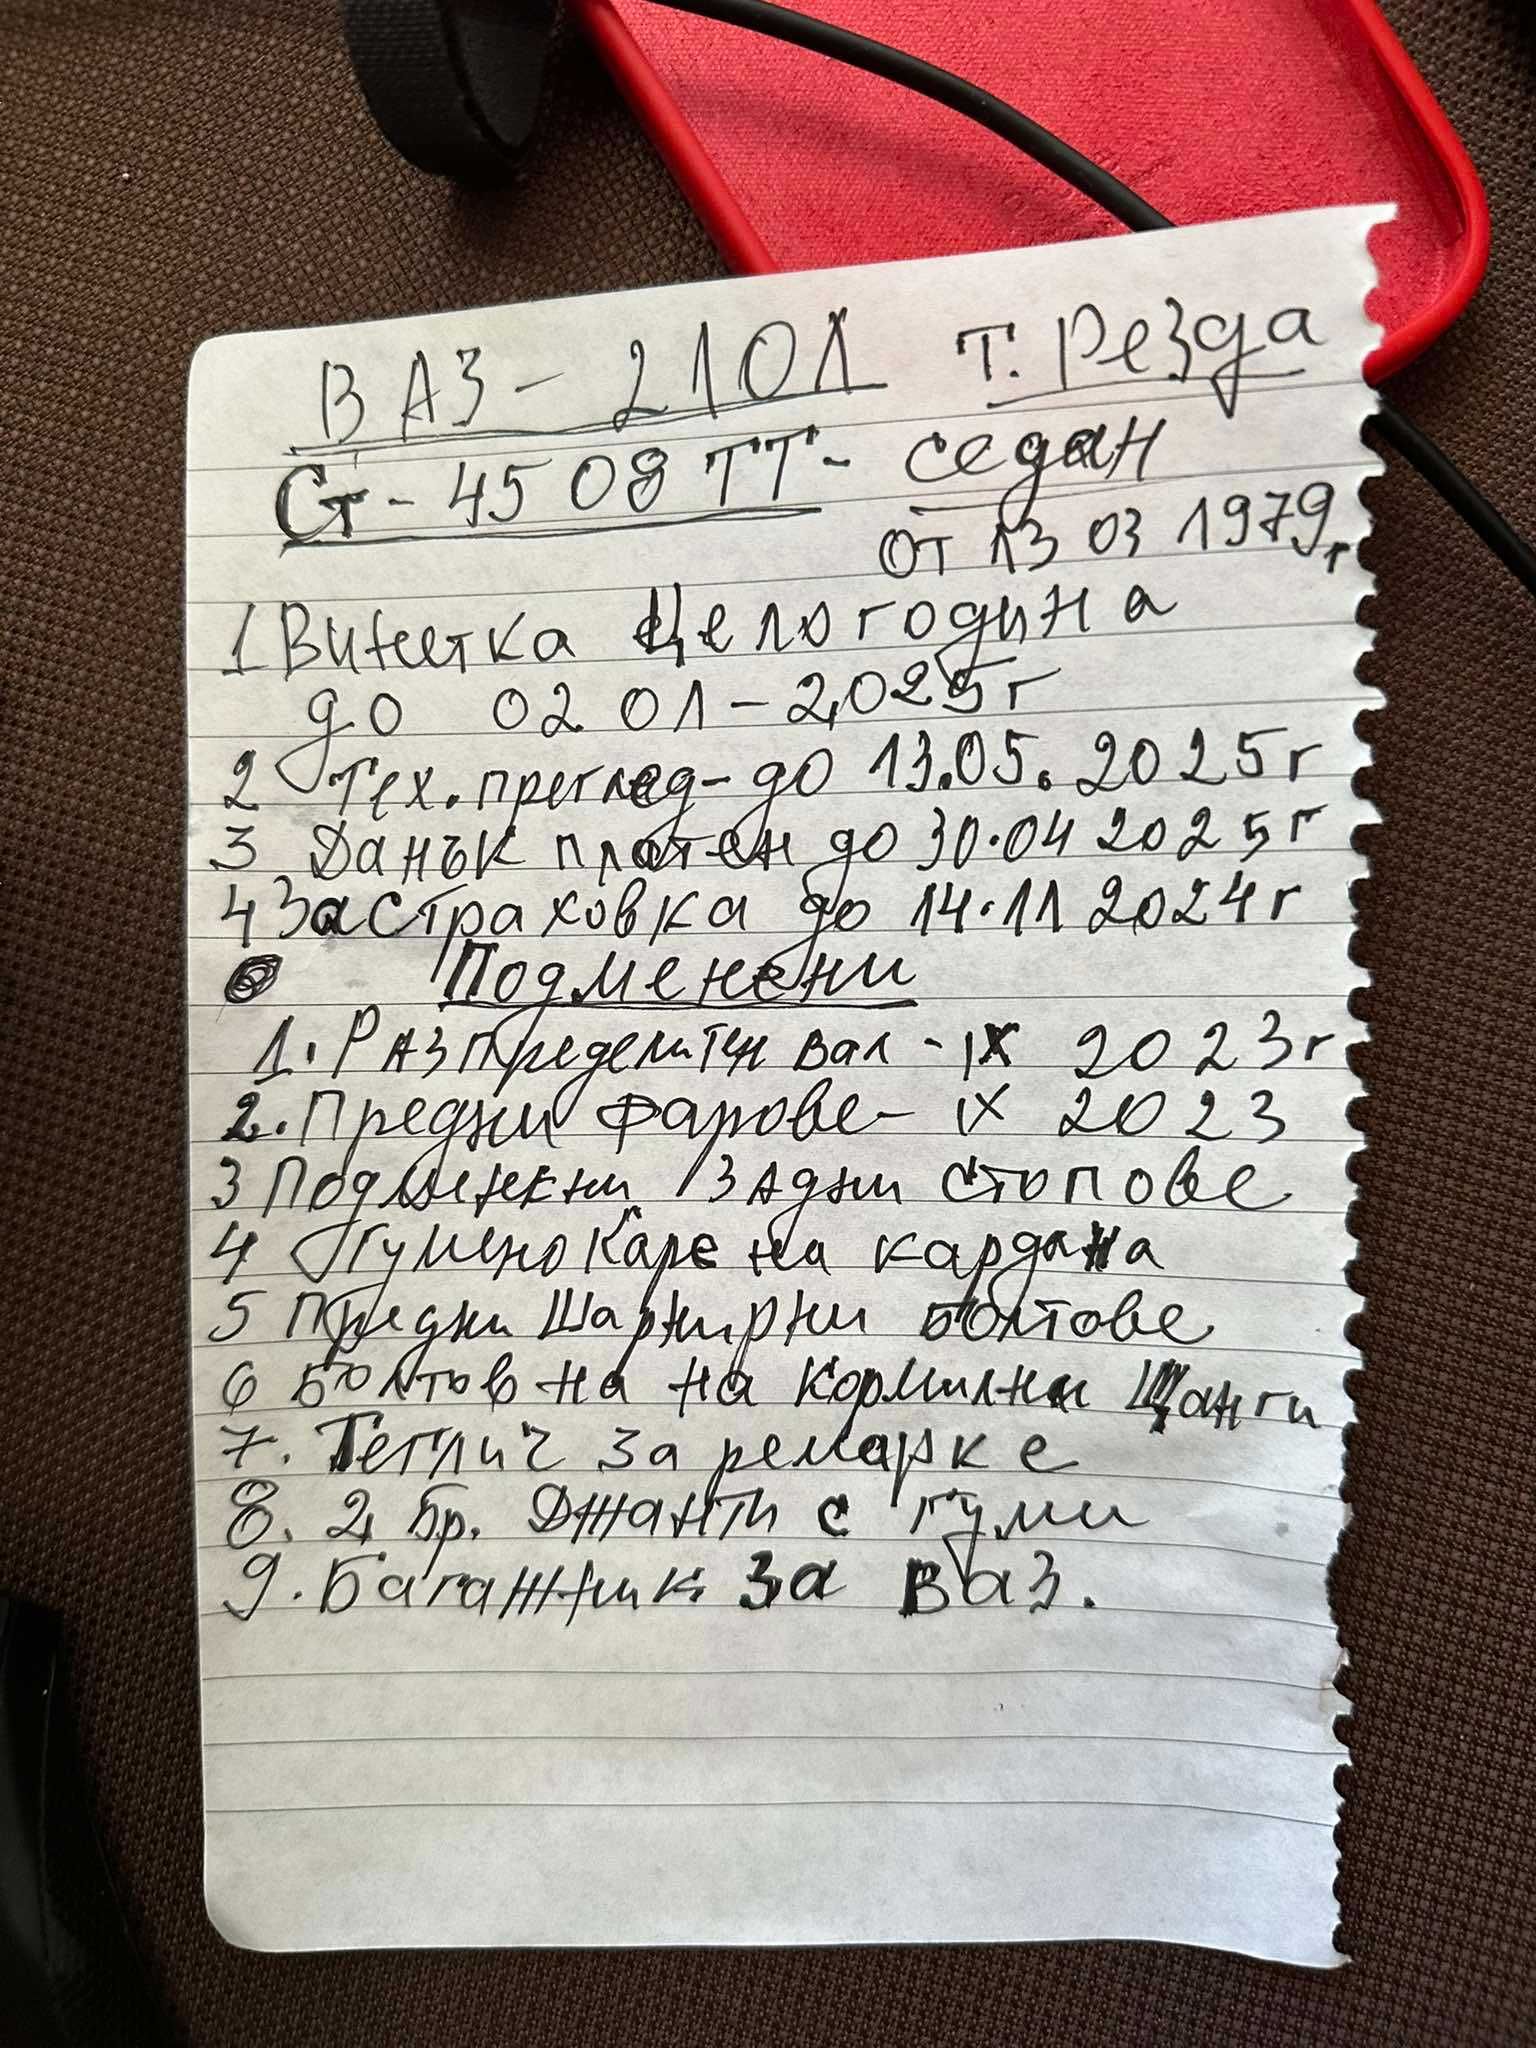 ВАЗ - 2101 т. Резда
Ст - 45 08 ТТ - седан
от 13 03 1979 г
1 Винетка Целогодина
до 02 01 - 2025 г
2 Тех. преглед - до 13.05. 2025 г
3 Данък платен до 30.04 2025 г
4 Застраховка до 14.11 2024 г
Подменени
1. Разпределитен вал - IX 2023 г
2. Предни фарове - IX 2023
3 Подменени задни стопове
4 Гумено Каре на кардана
5 Предни Шарнирни болтове
6 Болтов на на Кормилни Щанги
7. Теглич за ремарке
8. 2 бр. Джанти с гуми
9. Багажник за Ваз.